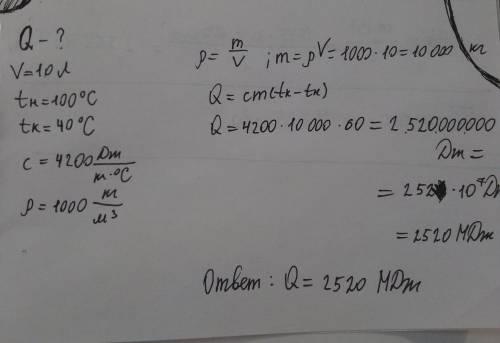 Q - ?
V = 10 л
tн = 100°C
tк = 40°C
c = 4200 Дж/т·°C
ρ = 1000 кг/м³
ρ = m/V ; m = ρV = 1000·10 = 10 000 кг
Q = cm(tк - tк)
Q = 4200·10 000·60 = 2 520000000
Дж =
= 252·10⁷ Дж
= 2520 МДж
Ответ: Q = 2520 МДж